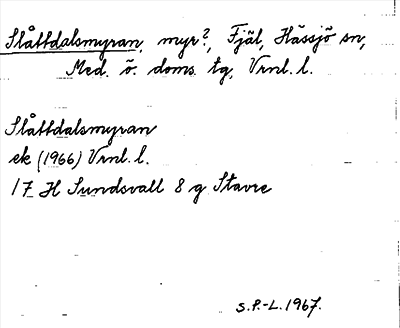 Slåttdalsmyran, myr?, Fjäl, Hässjö sn,
Med. ö. doms. tg, Vrnl. l.
Slåttdalsmyran
ek (1966) Vrnl. l.
17 H Sundsvall 8 g Stavre
S.P.-L. 1967.